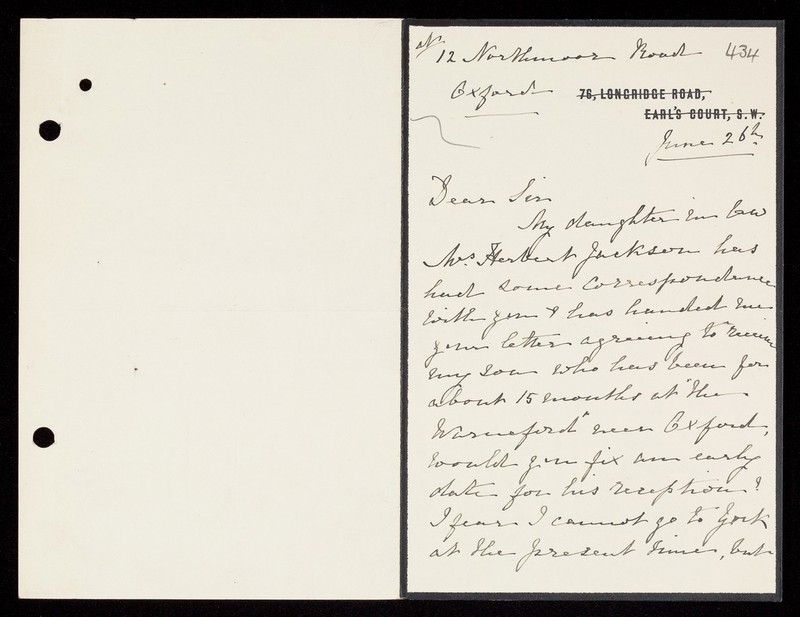 at 12 Northmoor Road 434
Oxford
76, LONGRIDGE ROAD,
EARL'S COURT, S.W.
June 26th
Dear Sir
My daughter in law
Mrs. Herbert Jackson has
had some correspondence
with you & has handed me
your letter agreeing to receive
my son who has been for
about 15 months at "the
Warneford" near Oxford,
would you fix an early
date for his reception?
I fear I cannot go to York
at the present time, but